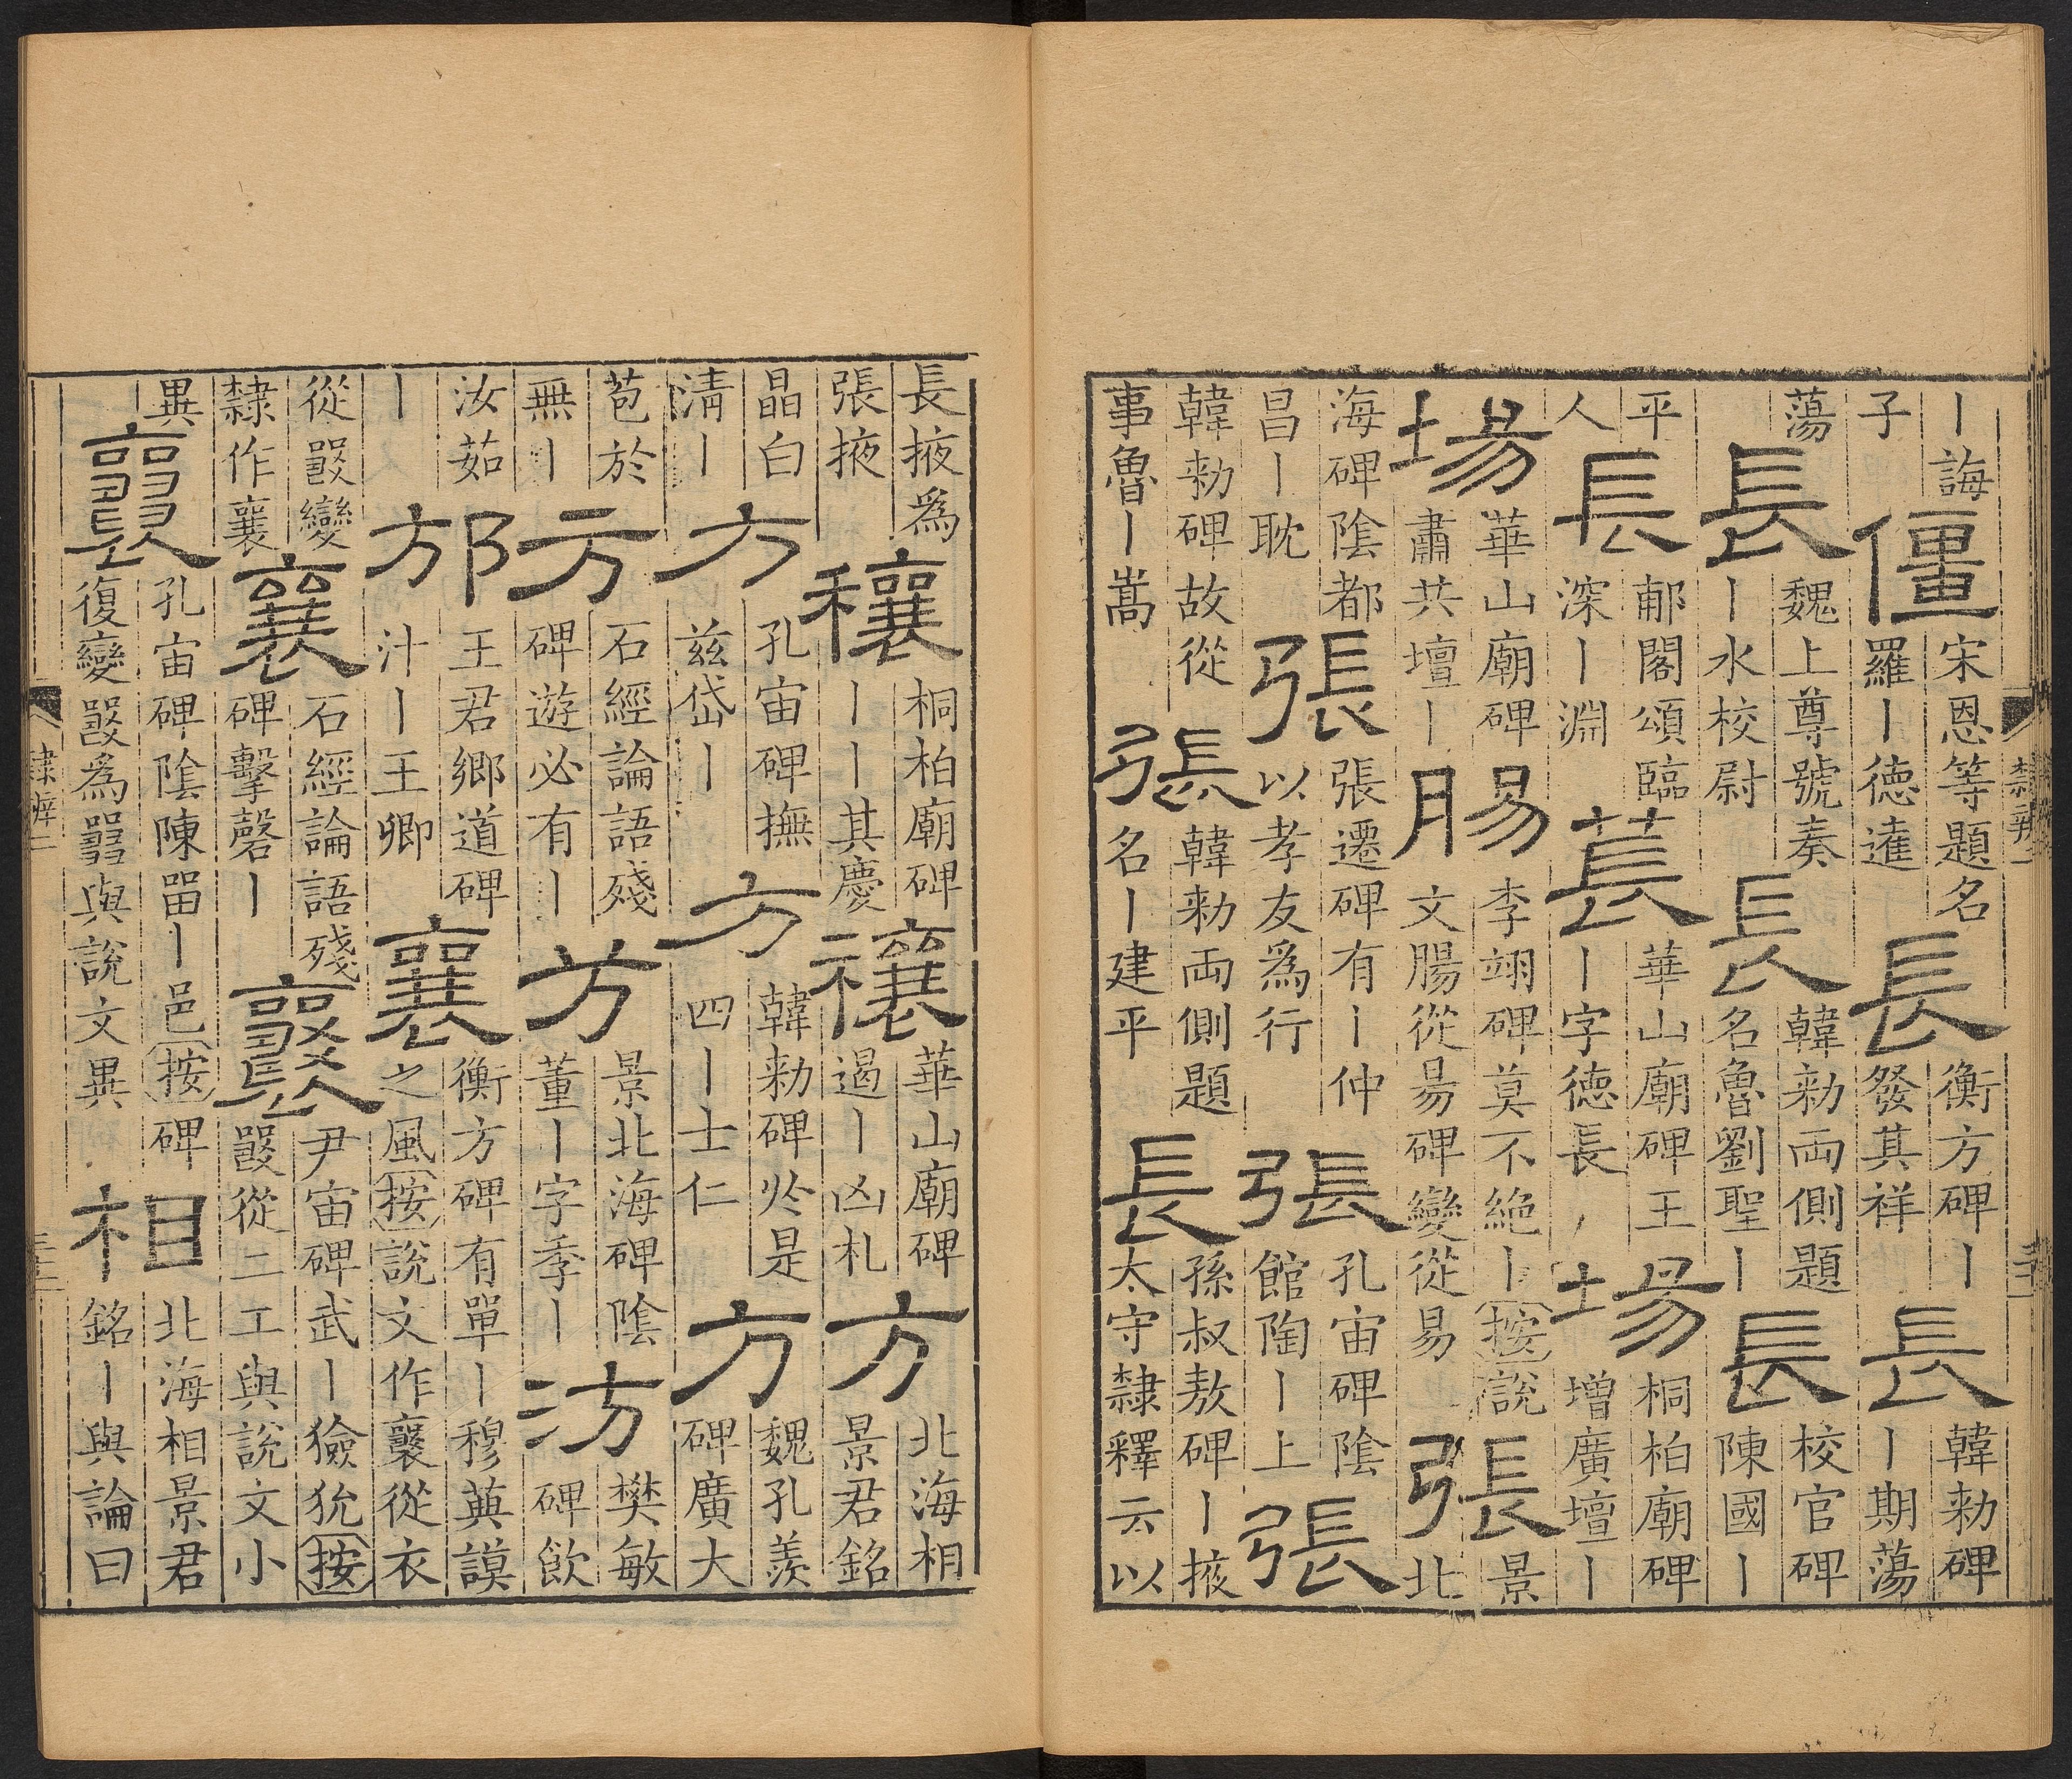 丨誨子僵宋恩等題名羅丨德達長衡方碑丨發其祥長韓勑碑丨期蕩
蕩長魏上尊號奏丨水校尉長韓勑兩側題名魯劉聖丨長校官碑陳國丨
平人長郙閣頌臨深丨淵萇華山廟碑王丨字德長場桐柏廟碑增廣壇丨
場華山廟碑肅共壇丨腸李翊碑莫不絶丨按說文腸從昜碑變從易張景北
海碑陰都昌丨耽張張遷碑有丨仲以孝友爲行張孔宙碑陰館陶丨上張
韓勑碑故從事魯丨嵩張韓勑兩側題名丨建平長孫叔敖碑丨掖太守隸釋云以
長掖爲張掖穰桐柏廟碑丨丨其慶禳華山廟碑遏丨凶札方北海相景君銘
晶白淸丨方孔宙碑撫茲岱丨方韓勑碑是四丨士仁方魏孔羨碑廣大
苞於無丨方石經論語殘碑遊必有丨方景北海碑陰董丨字季丨汸樊敏碑飮
汝茹丨邡王君鄉道碑汁丨王卿襄衡方碑有單丨穆蓂謨之風按說文作襄從衣
從𤕦變隸作襄襄石經論語殘碑擊磬丨襄尹宙碑武丨獫狁按𤕦從二工與說文小
異襄孔宙碑陰陳畱丨邑按碑復變𤕦爲㗊與說文異相北海相景君銘丨與論曰
隸辨